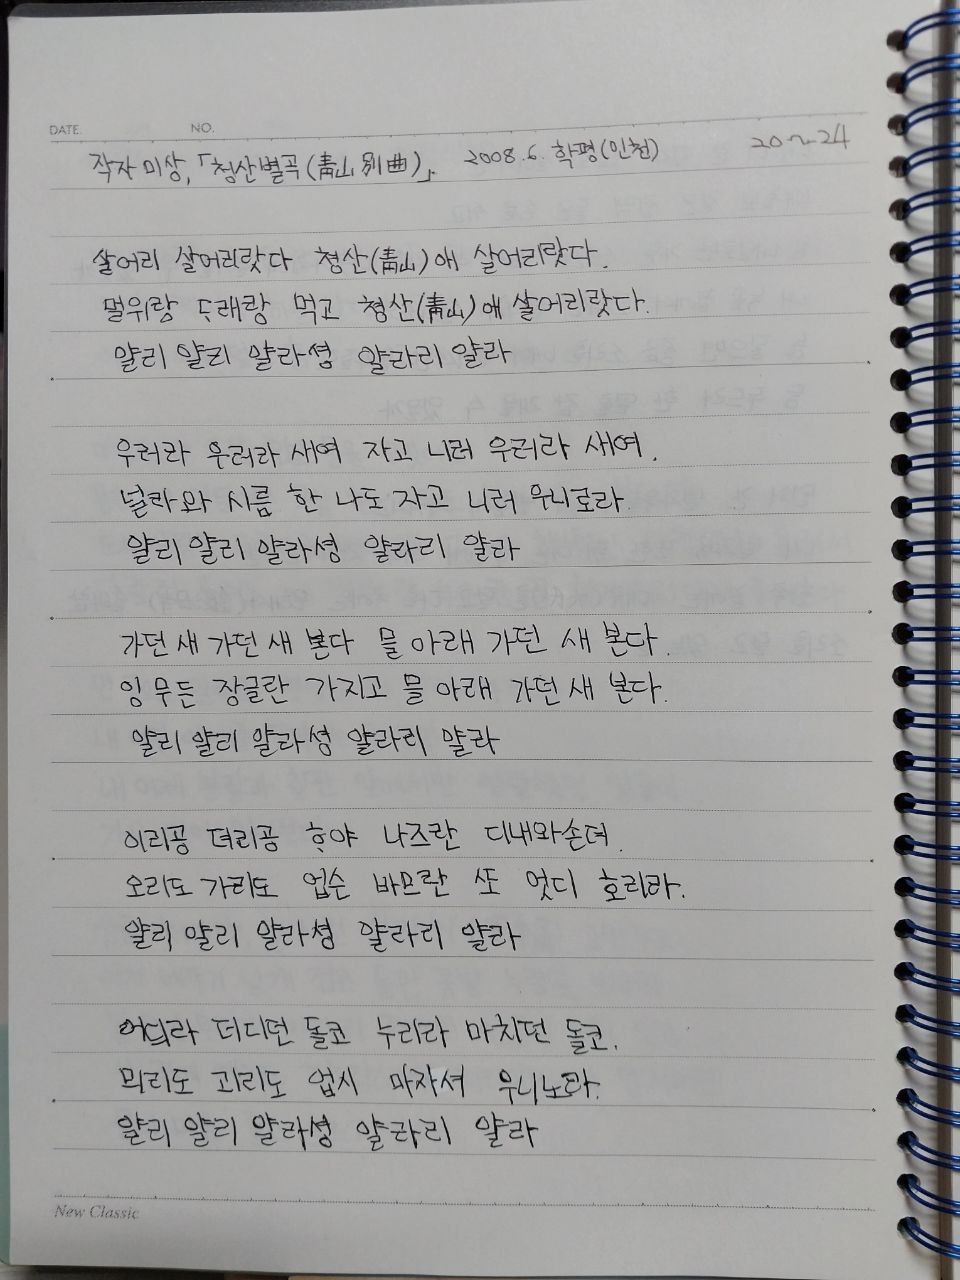 DATE. NO.
작자 미상, 「청산별곡(靑山別曲)」. 2008.6. 학평(인천) 20~24
살어리 살어리랏다 청산(靑山)애 살어리랏다.
멀위랑 ᄃᆞ래랑 먹고 청산(靑山)애 살어리랏다.
얄리 얄리 얄라셩 얄라리 얄라
우러라 우러라 새여 자고 니러 우러라 새여.
널라와 시름 한 나도 자고 니러 우니로라.
얄리 얄리 얄라셩 얄라리 얄라
가던 새 가던 새 본다 믈 아래 가던 새 본다.
잉 무든 장글란 가지고 믈 아래 가던 새 본다.
얄리 얄리 얄라셩 얄라리 얄라
이리공 뎌리공 ᄒᆞ야 나즈란 디내와손뎌.
오리도 가리도 업슨 바므란 ᄯᅩ 엇디 호리라.
얄리 얄리 얄라셩 얄라리 얄라
어듸라 더디던 돌코 누리라 마치던 돌코.
믜리도 괴리도 업시 마자셔 우니노라.
얄리 얄리 얄라셩 얄라리 얄라
New Classic